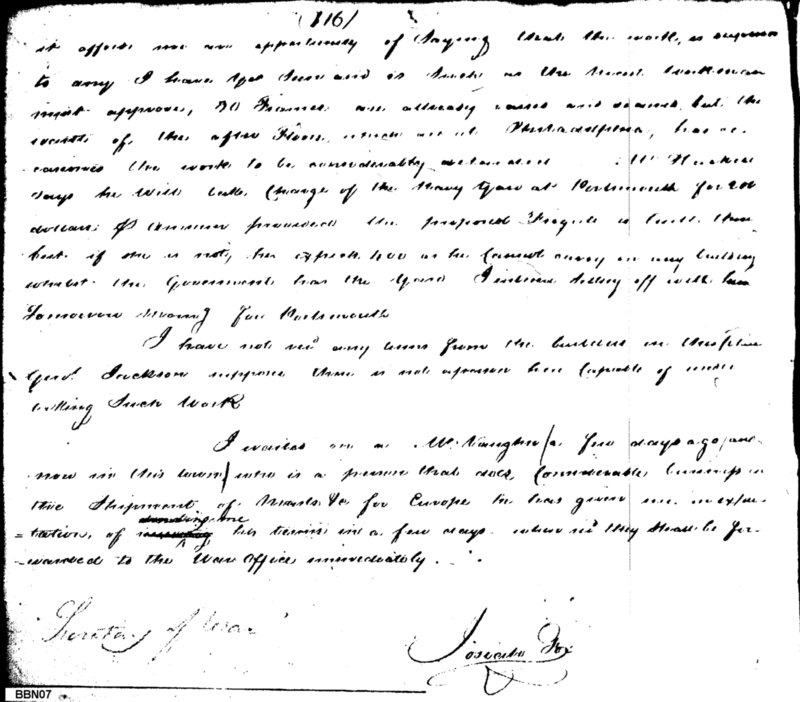 (116)
it affords me an opportunity of saying that the work, is superior
to any I have yet seen and is such as the best workman
must approve, 30 Frames are already raised and seamed but the
want of the after Floors, which are at Philadelphia, has oc
casioned the work to be considerably retarded Mr Hackett
says he will take charge of the Navy Yard at Portsmouth for 200
dollars P annum provided the proposed Frigate is built there
but if she is not, he expects 400 as he cannot carry on any building
whilst the Government has the Yard I intend setting off with him
Tomorrow morning for Portsmouth
I have not recd any terms from the builders in this place
Genl. Jackson supposes there is not a person here capable of under
taking such work
I waited on a Mr Vaughn (a few days ago, and
now in this town) who is a person that does, considerable business in
the shipment of Masts &c for Europe he has given me an expec
=tation, of sending me his terms in a few days when recd they shall be for
warded to the War Office immediately.
Secretary of War
Josiah Fox
BBN07